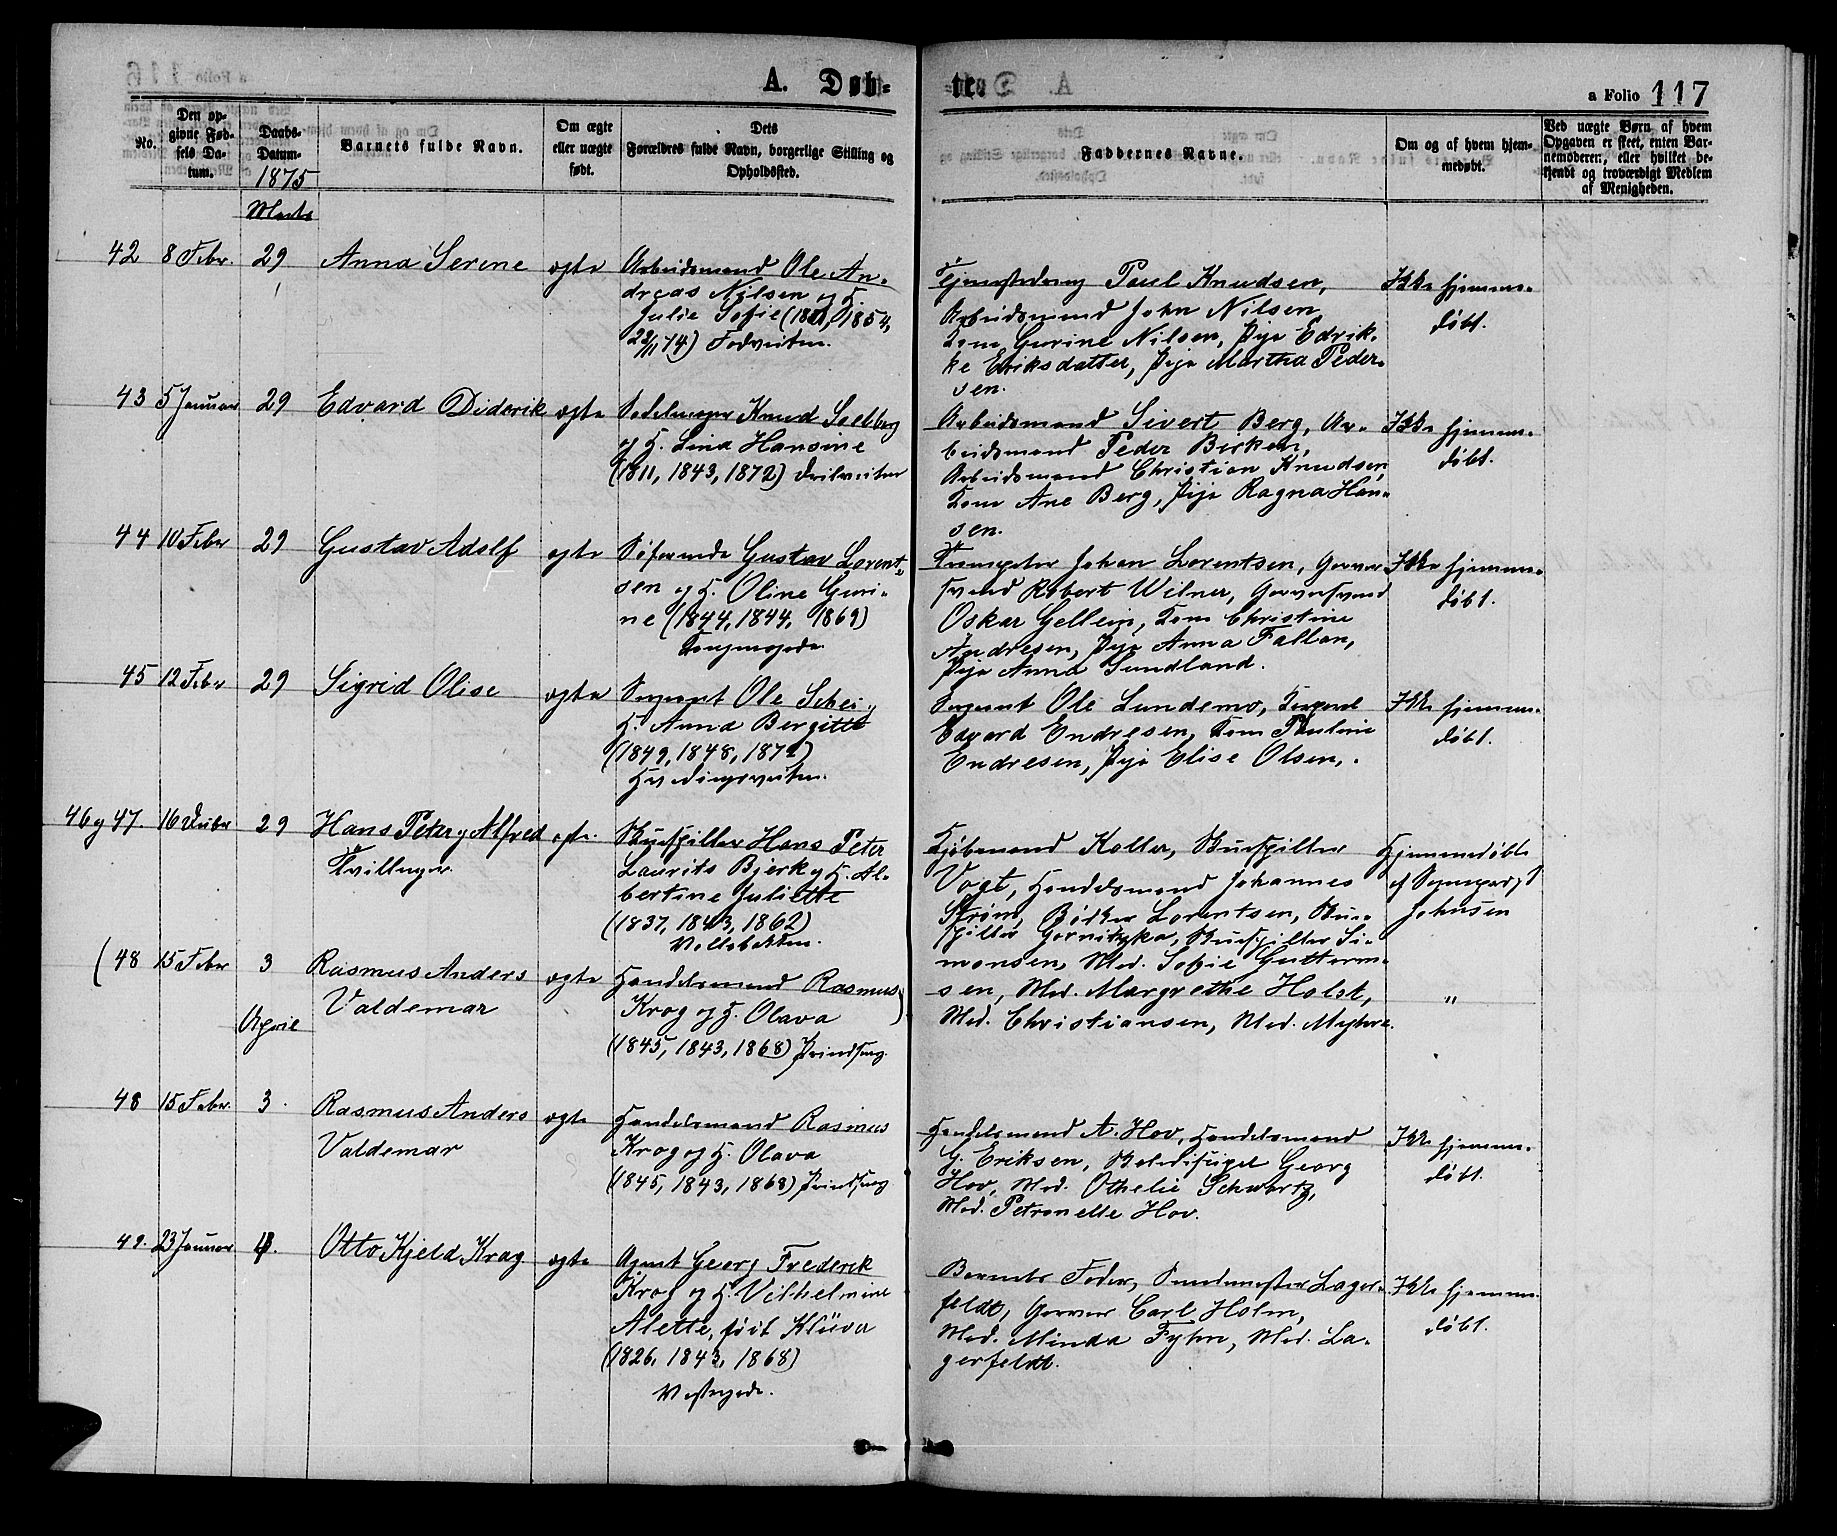 A. Døb-
te.
a Folio 117
No.
Den op-
givne Fød-
sels Da-
tum.
Daabs-
Datum.
1875
Barnets fulde Navn.
Om ægte
eller uægte
født.
Dets
Forældres fulde Navn, borgerlige Stilling og
Opholdssted.
Faddernes Navne.
Om og af hvem hjem-
medøbt.
Ved uægte Børn af hvem
Opgaven er skeet, enten Bar-
nemoderen, eller hvilket be-
kjendt og troværdigt Medlem
af Menigheden.
Marts
42 8 Febr. 29 Anna Serine ægte
Arbeidsmand Ole An-
dreas Nilsen og H.
Julie Sofie 1854,
22/11 74)
Paul Knudsen,
Arbeidsmand John Nilsen
Kone Gurine Nilsen, Pige Edrik-
ke Eriksdatter, Pige Martha Peder-
sen.
Ikke hjemme-
døbt.
43 5 Januar 29 Edvard Diderik ægte
Sadelmager Knud Solberg
og H. Lina Hansine
(1811, 1843, 1872)
Arbeidsmand Sivert Berg, Ar-
beidsmand Peder Birken,
Arbeidsmand Christian Knudsen,
Kone Ane Berg, Pige Ragna Han-
sen.
Ikke hjemme-
døbt.
44 10 Febr 29 Gustav Adolf ægte
Gustav Lorent-
sen og H. Oline Guri-
ne (1844, 1844, 1869)
Kongensgade.
Trompeter Johan Lorentsen, Garver
svend Robert Wilner, Garversvend
Oskar Gellein, Kone Christine
Andresen, Pige Anna Fallan,
Pige Anna Sundland.
Ikke hjemme-
døbt.
45 12 Febr 29 Sigrid Olise ægte
Sergeant Ole Schei
H. Anna Bergitte
(1849, 1848, 1872)
Sergeant Ole Lundemo,
Edvard Endresen, Kone Pauline
Endresen, Pige Elise Olsen.
Ikke hjemme-
døbt.
46 og 47. 16 Debr 29 Hans Peter og Alfred ægte.
Tvillinger.
Skuespiller Hans Peter
Laurits Bjerk og H. Al-
bertine Juliette
(1837, 1843, 1862)
Vollabakken.
Kjøbmand Koller, Skuespiller
Vogt, Handelsmand Johannes
Strøm, Bødker Lorentsen, Skue-
spiller Skuespiller Si-
monsen, Mad. Sofie Guttorm-
sen, Mad. Margrethe Holst,
Mad. Christiansen, Mad.
Hjemmedøbte
af
Johnsen
(48 15 Febr 3 Rasmus Anders ægte
April
Valdemar
Handelsmand Rasmus
Krog og H. Olava
(1845, 1843, 1868) Prindsensg
"
48 15 Febr. 3. Rasmus Anders ægte
Valdemar
Handelsmand Rasmus
Krog og H. Olava
(1845, 1843, 1868) Prindsensg
Handelsmand A. Hov, Handelsmand
G. Eriksen, Georg
Hov, Mad. Othelie Schwartz,
Mad. Petronelle Hov.
Ikke hjemme-
døbt.
49. 23 Januar Otto Kjeld Krag ægte
Agent Georg Frederik
Krog og H. Vilhelmine
Alette, født Klüver
(1826, 1843, 1868)
Barnets Fader, Lager-
feldt, Garver Carl Holm,
Mad. Minda Fyhn, Mad. La-
gerfeldt.
Ikke hjemme-
døbt.